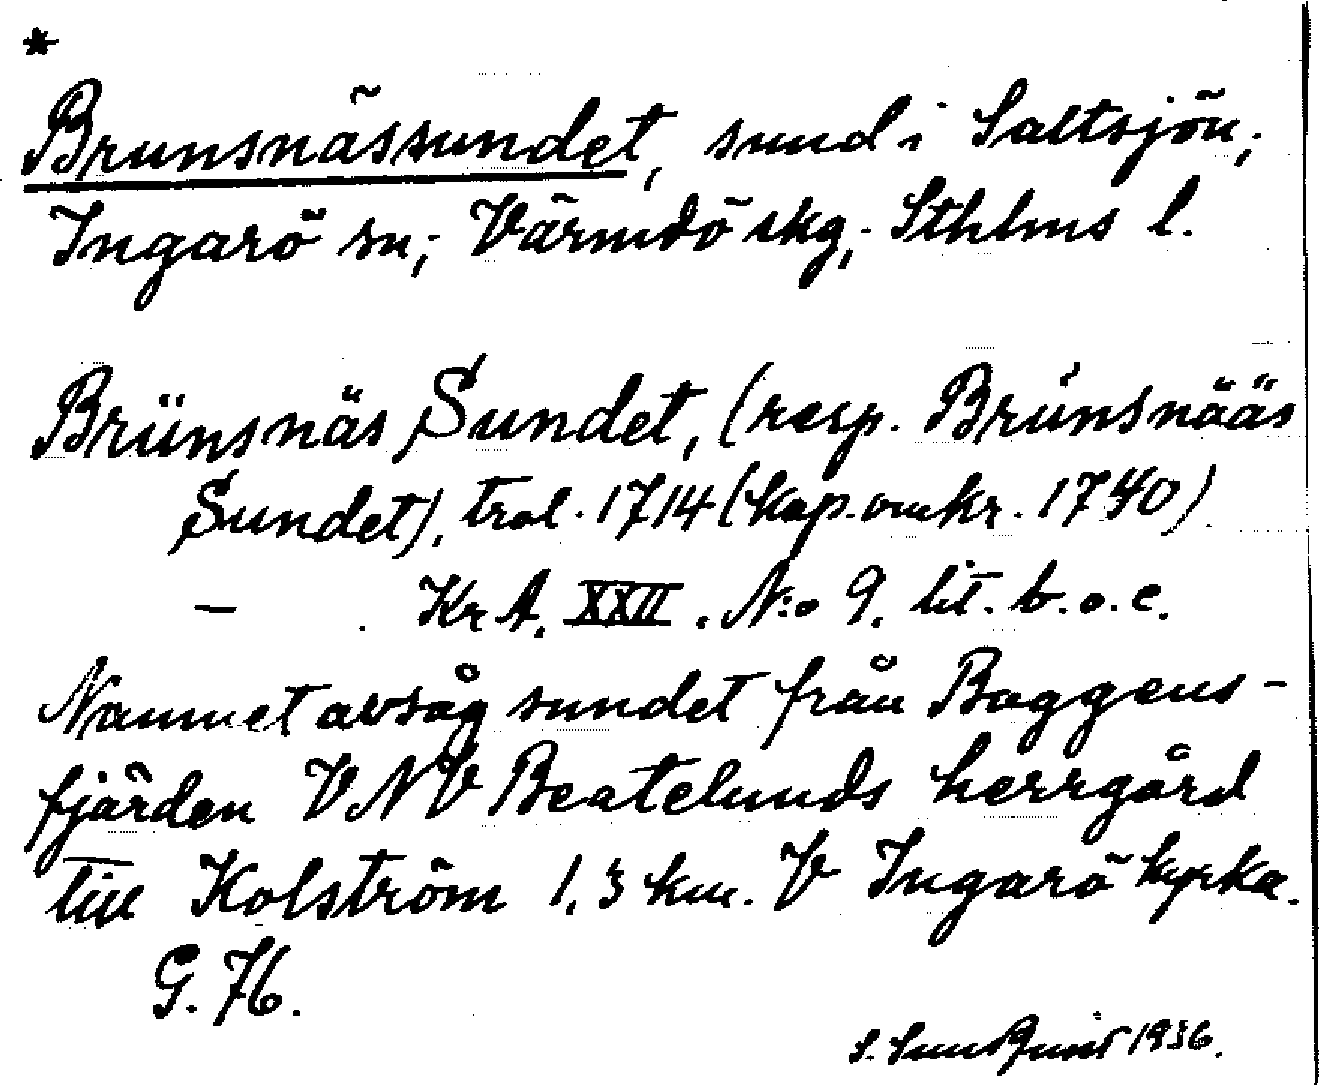 *
Brunsnässundet, sund i Saltsjön;
Ingarö sn; Värmdö skg; Sthlms l.
Brünsnäs Sundet, (resp. Brůnsnääs
Sundet), trol. 1714 (kop. omkr. 1740)
— . Kr A. XXII. N:o 9. lit. b. o. c.
Namnet avsåg sundet från Baggens-
fjärden VNV Beatelunds herrgård
till Kolström 1,3 km. V Ingarö kyrka.
G. 76.
S. 1936.